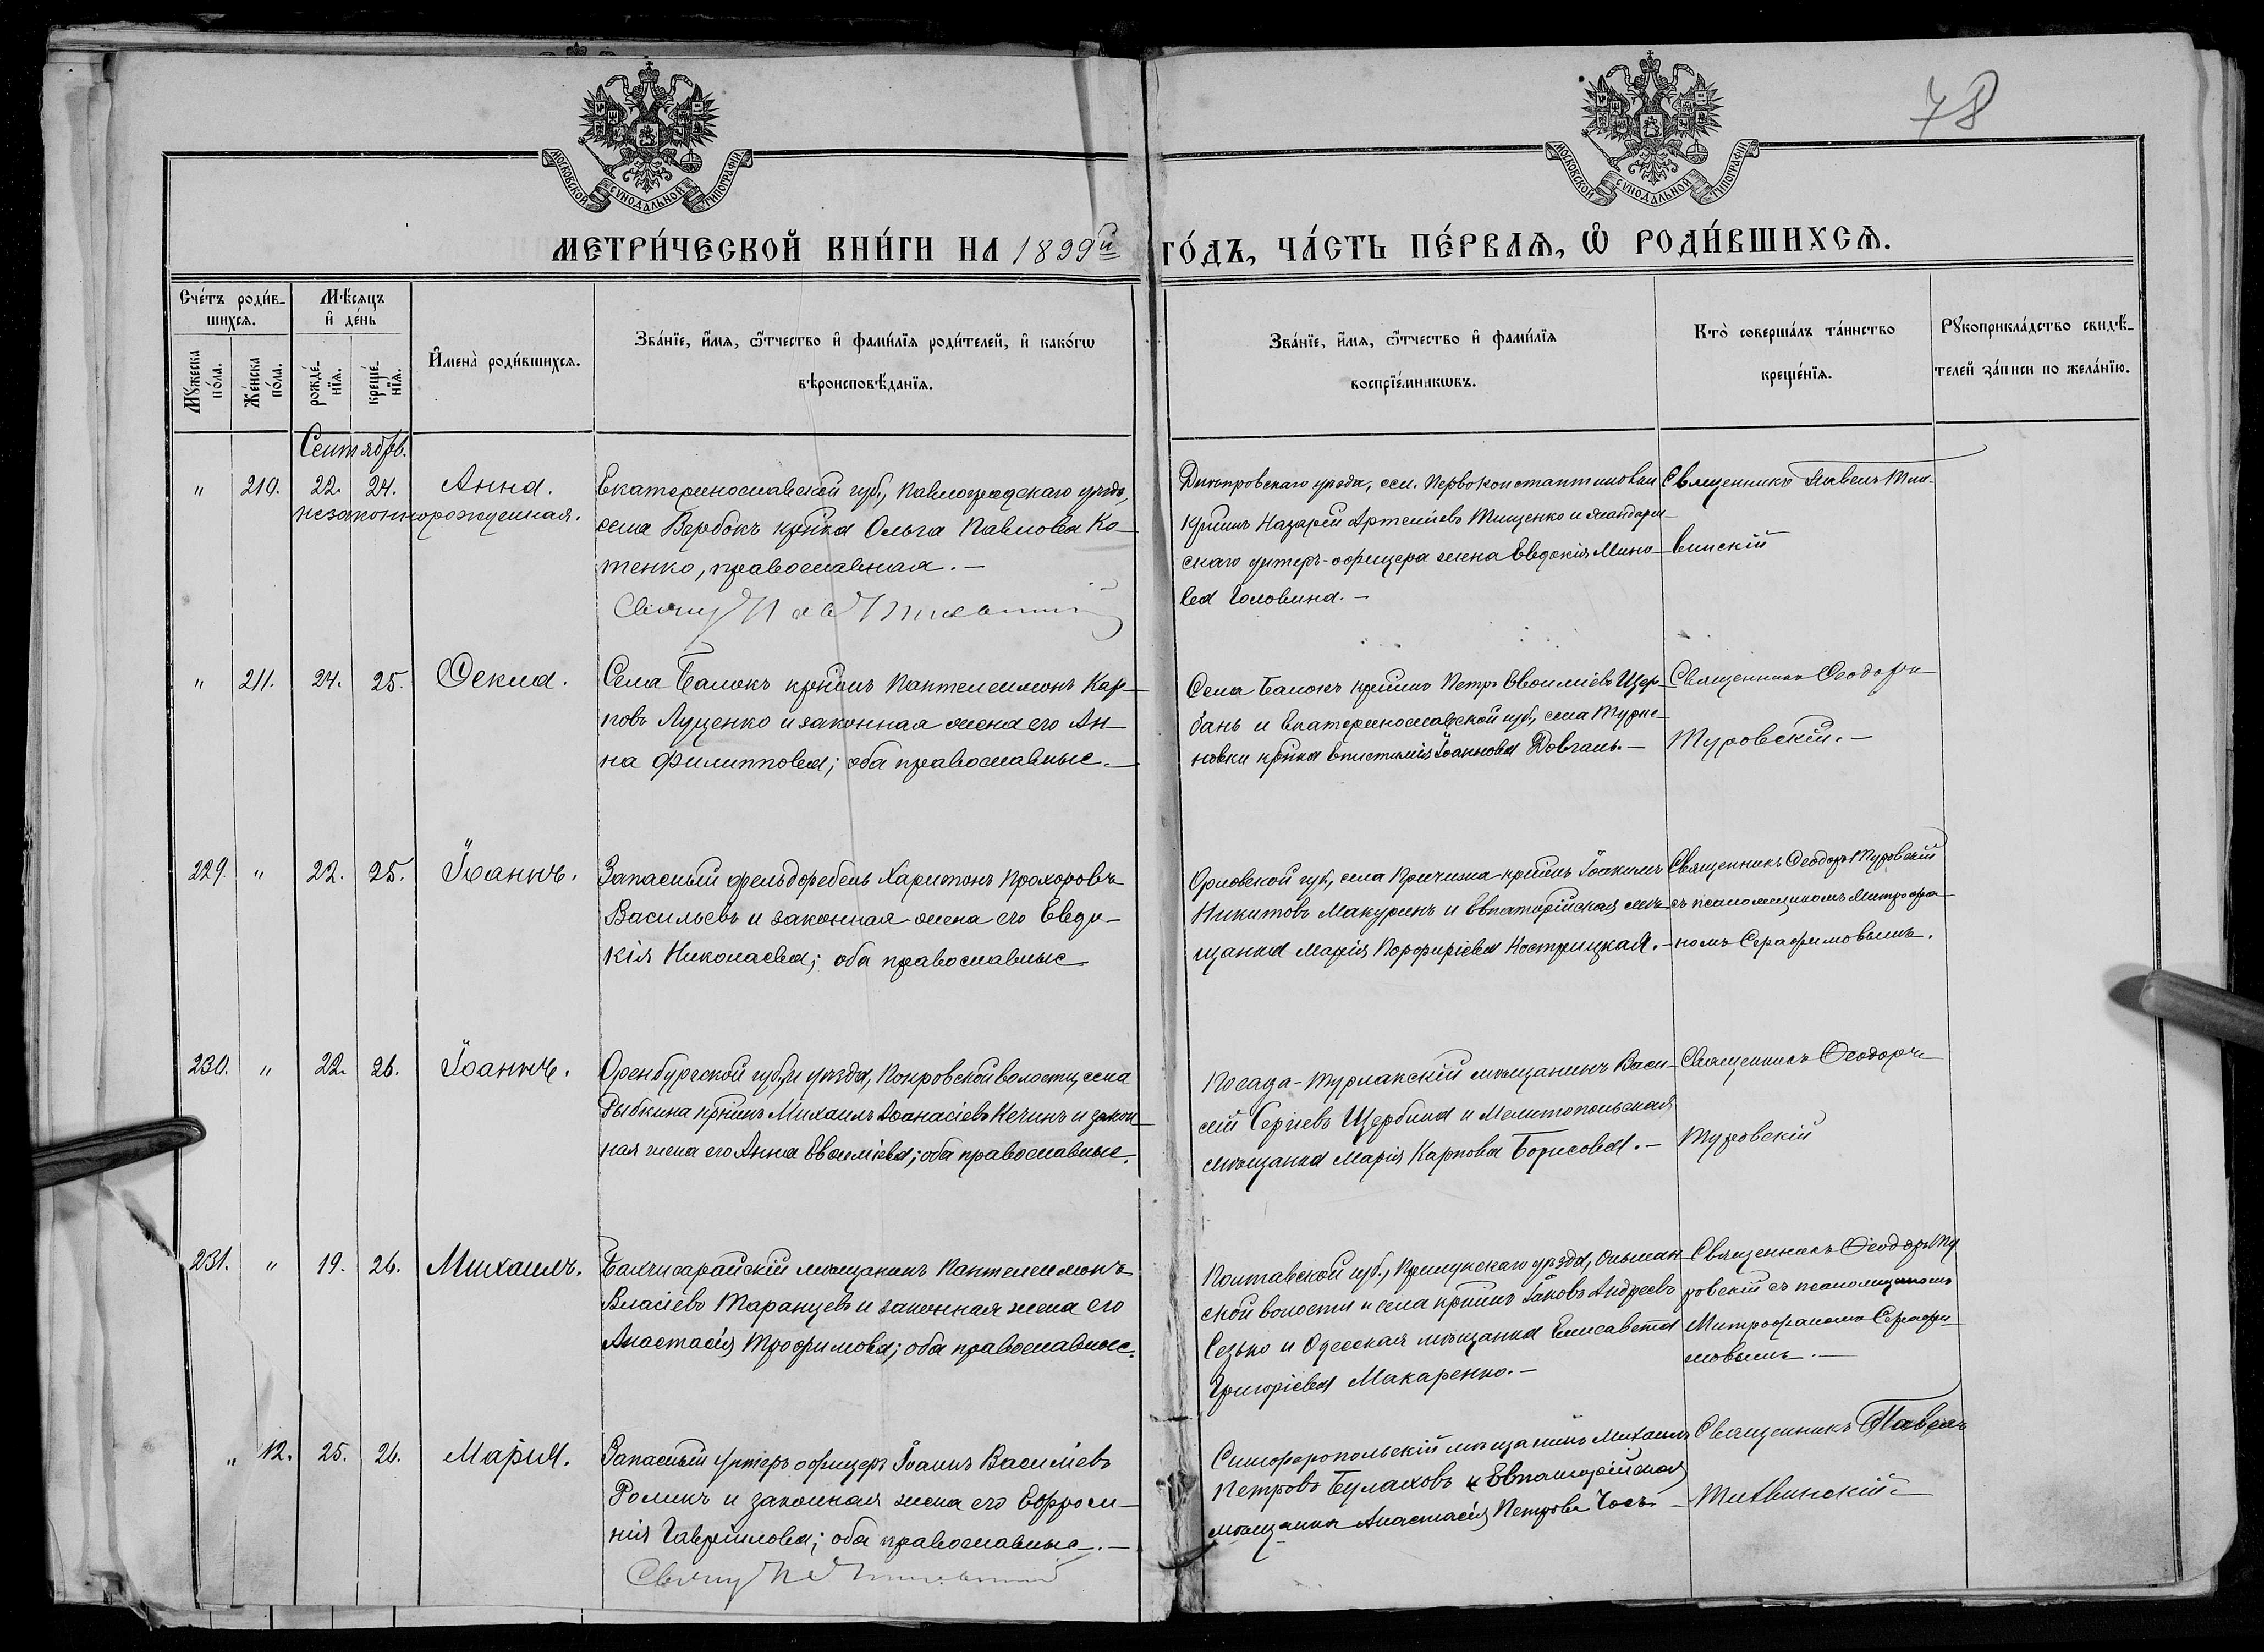 78
МОСКОВСКОЙ СѴНОДАЛЬНОЙ ТИПОГРАФІИ
МОСКОВСКОЙ СѴНОДАЛЬНОЙ ТИПОГРАФІИ
МЕТРИ́ЧЕСКОЙ КНИ́ГИ НА 1899й ГО́ДЪ, ЧА́СТЬ ПЕ́РВАѦ, Ѡ҆ РОДИ́ВШИХСѦ.
Сче́тъ роди́в-
шихсѧ.
Мꙋ́жеска по́ла.
Же́нска по́ла.
Мѣ́сѧцъ
и҆ де́нь
рожде́-
нїѧ.
креще́-
нїѧ.
И҆мена̀ роди́вшихсѧ.
Зва́нїе, и҆́мѧ, ѻ҆́тчество и҆ фами́лїѧ роди́телей, и҆ како́гѡ
вѣроисповѣ́данїѧ.
Зва́нїе, и҆́мѧ, ѻ҆́тчество и҆ фами́лїѧ
воспрїе́мникѡвъ.
Кто̀ соверша́лъ та́инство
креще́нїѧ.
Рꙋкоприкла́дство свидѣ́-
телей за́писи по жела́нїю.
Сентябрь.
" 210. 22. 24. Анна.
незаконнорожденная.
Екатеринославской губ., Павлоградскаго уѣзда,
села Вербокъ кр-нка Ольга Павлова Ко-
тенко, православная. —
Днѣпровскаго уѣзда, сел. Первоконстантиновки
кр-нинъ Назарій Артеміевъ Тищенко и жандарм-
скаго унтеръ-офицера жена Евдокія
Головина. —
Священникъ Павелъ Тих-
винскій
" 211. 24. 25. Ѳекла.
Села Балокъ кр-нинъ Пантелеимонъ Кар-
повъ Луценко и законная жена его Ан-
на Филиппова; оба православные. —
Села Балокъ кр-нинъ Петръ Евѳиміевъ Щер-
бань и Екатеринославской губ., села
кр-нка Епистимія Іоаннова Довгань. —
Священникъ Ѳеодоръ
Туровскій. —
229. " 22. 25. Іоаннъ.
Запасный фельдфебель Харитонъ Прохоровъ
Васильевъ и законная жена его Евдо-
кія Николаева; оба православные
Орловской губ., села кр-нинъ Іоакимъ
Никитовъ Макуринъ и Евпаторійская мѣ-
щанка Марія Порфиріева Кострицкая. —
Священникъ Ѳеодоръ Туровскій
съ псаломщикомъ Митрофа-
номъ Серафимовымъ.
230. " 22. 26. Іоаннъ.
Оренбургской губ. и уѣзда, Покровской волости, села
Рыбкина кр-нинъ Михаилъ Аѳанасіевъ Кечинъ и закон-
ная жена его Анна Евѳиміева; оба православные.
Посада-Турлакскій мѣщанинъ Васи-
лій Сергіевъ Щербина и Мелитопольская
мѣщанка Марія Карпова Борисова. —
Священникъ Ѳеодоръ
Туровскій
231. " 19. 26. Михаилъ.
Бахчисарайскій мѣщанинъ Пантелеимонъ
Власіевъ Таранцевъ и законная жена его
Анастасія Трофимова; оба православные.
Полтавской губ., Прилукскаго уѣзда, Ольшан-
ской волости и села кр-нинъ Іаковъ Андреевъ
Сезько и Одесская мѣщанка Елисавета
Григоріева Макаренко. —
Священникъ Ѳеодоръ Ту
ровскій съ псаломщикомъ
Митрофаномъ Серафи-
мовымъ. —
" 12. 25. 26. Марія.
Запасный унтеръ офицеръ Іоаннъ Василіевъ
Роликъ и законная жена его Евфроси-
нія Гавріилова; оба православные. —
Симферопольскій мѣщанинъ Михаилъ
Петровъ Булаховъ и Евпаторійская
мѣщанка Анастасія Петрова —
Священникъ Павелъ
Тихвинскій —